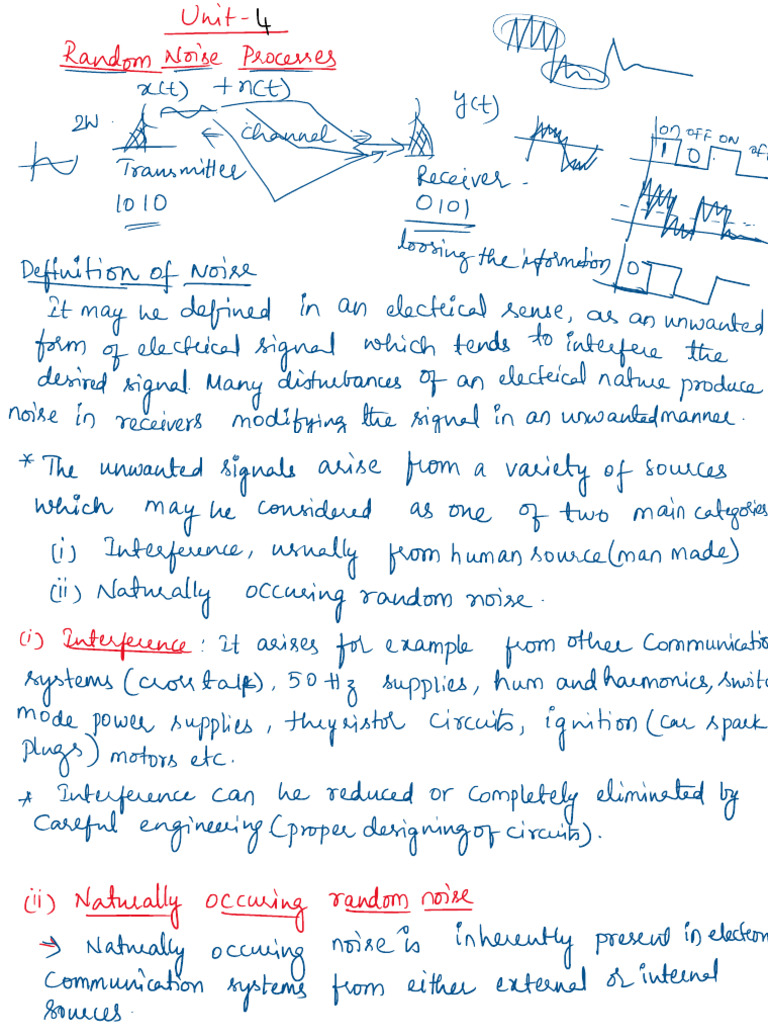 Unit-4
Random Noise Processes
x(t) + n(t)
y(t)
2W
channel
on off ON off
1 0
Transmitter
Receiver
1010
0101
loosing the information
0
Definition of Noise
It may be defined in an electrical sense, as an unwanted
form of electrical signal which tends to interfere the
desired signal. Many disturbances of an electrical nature produce
noise in receivers modifying the signal in an unwanted manner.
* The unwanted signals arise from a variety of sources
which may be considered as one of two main categories
(i) Interference, usually from human source (man made)
(ii) Naturally occuring random noise.
(i) Interference : It arises for example from other Communicatio
systems (cross talk), 50 Hz supplies, hum and harmonics, switc
mode power supplies, thyristor circuits, ignition (car spark
plugs) motors etc.
* Interference can be reduced or completely eliminated by
careful engineering (proper designing of circuits).
(ii) Naturally occuring random noise
→ Naturally occuring noise is inherently present in electron
communication systems from either external or internal
sources.